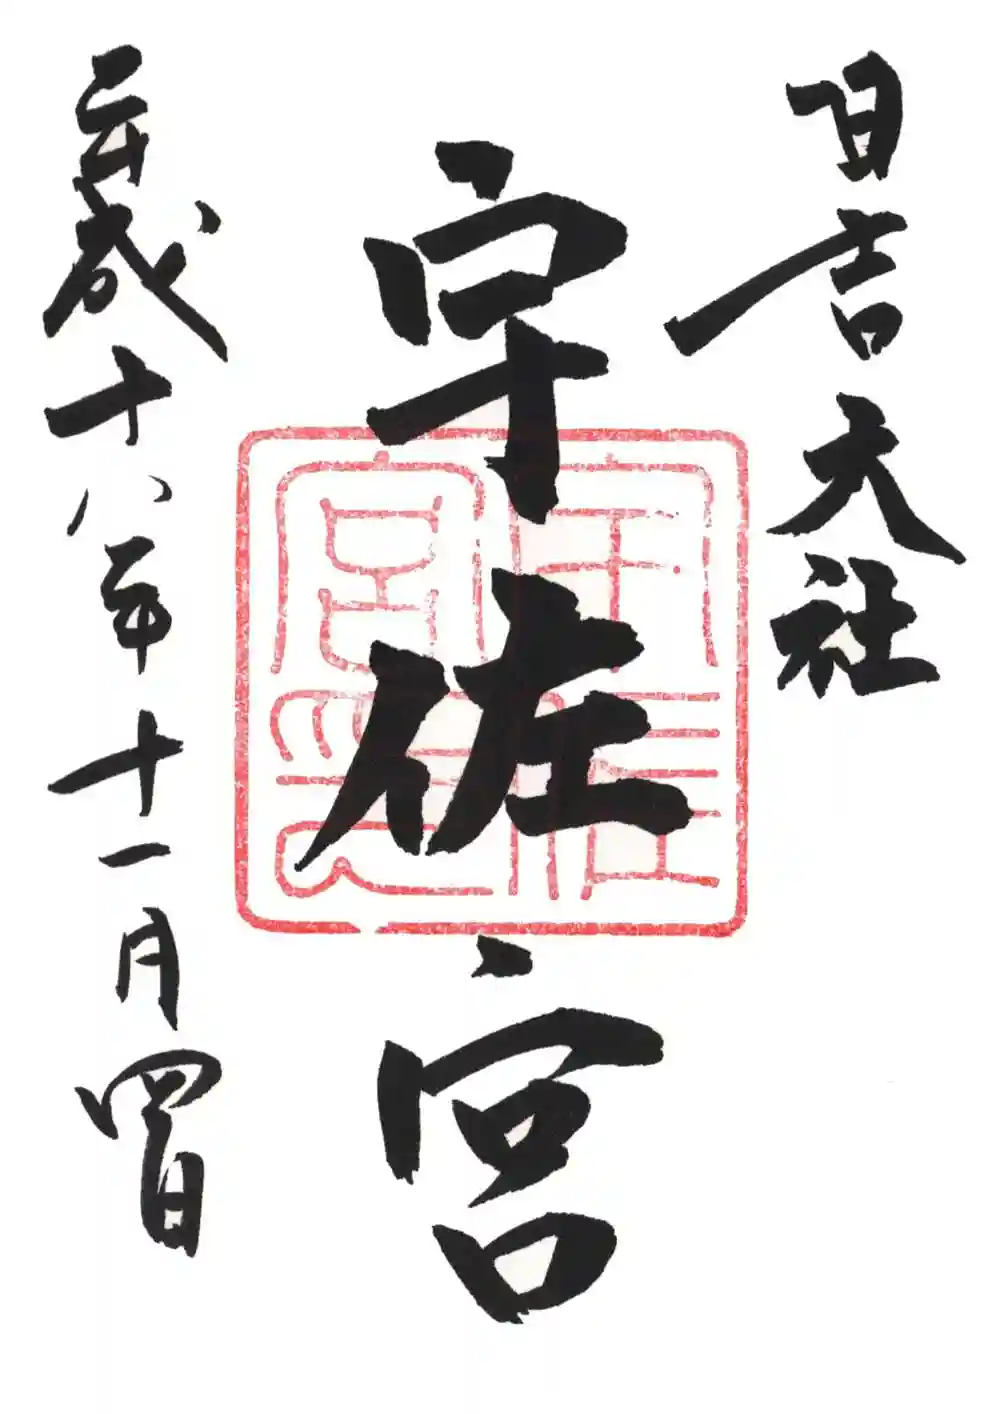 日吉大社
宇佐宮
宇佐宮印
平成十八年十一月四日